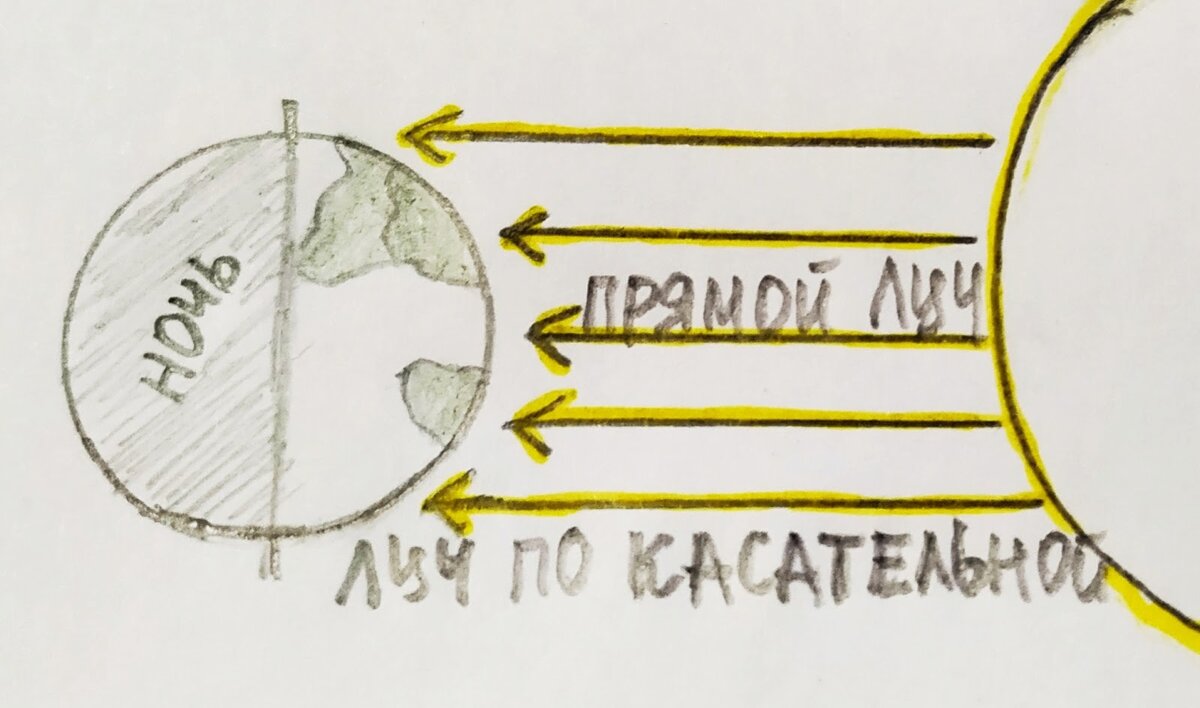 НОЧЬ
ПРЯМОЙ ЛУЧ
ЛУЧ ПО КАСАТЕЛЬНОЙ